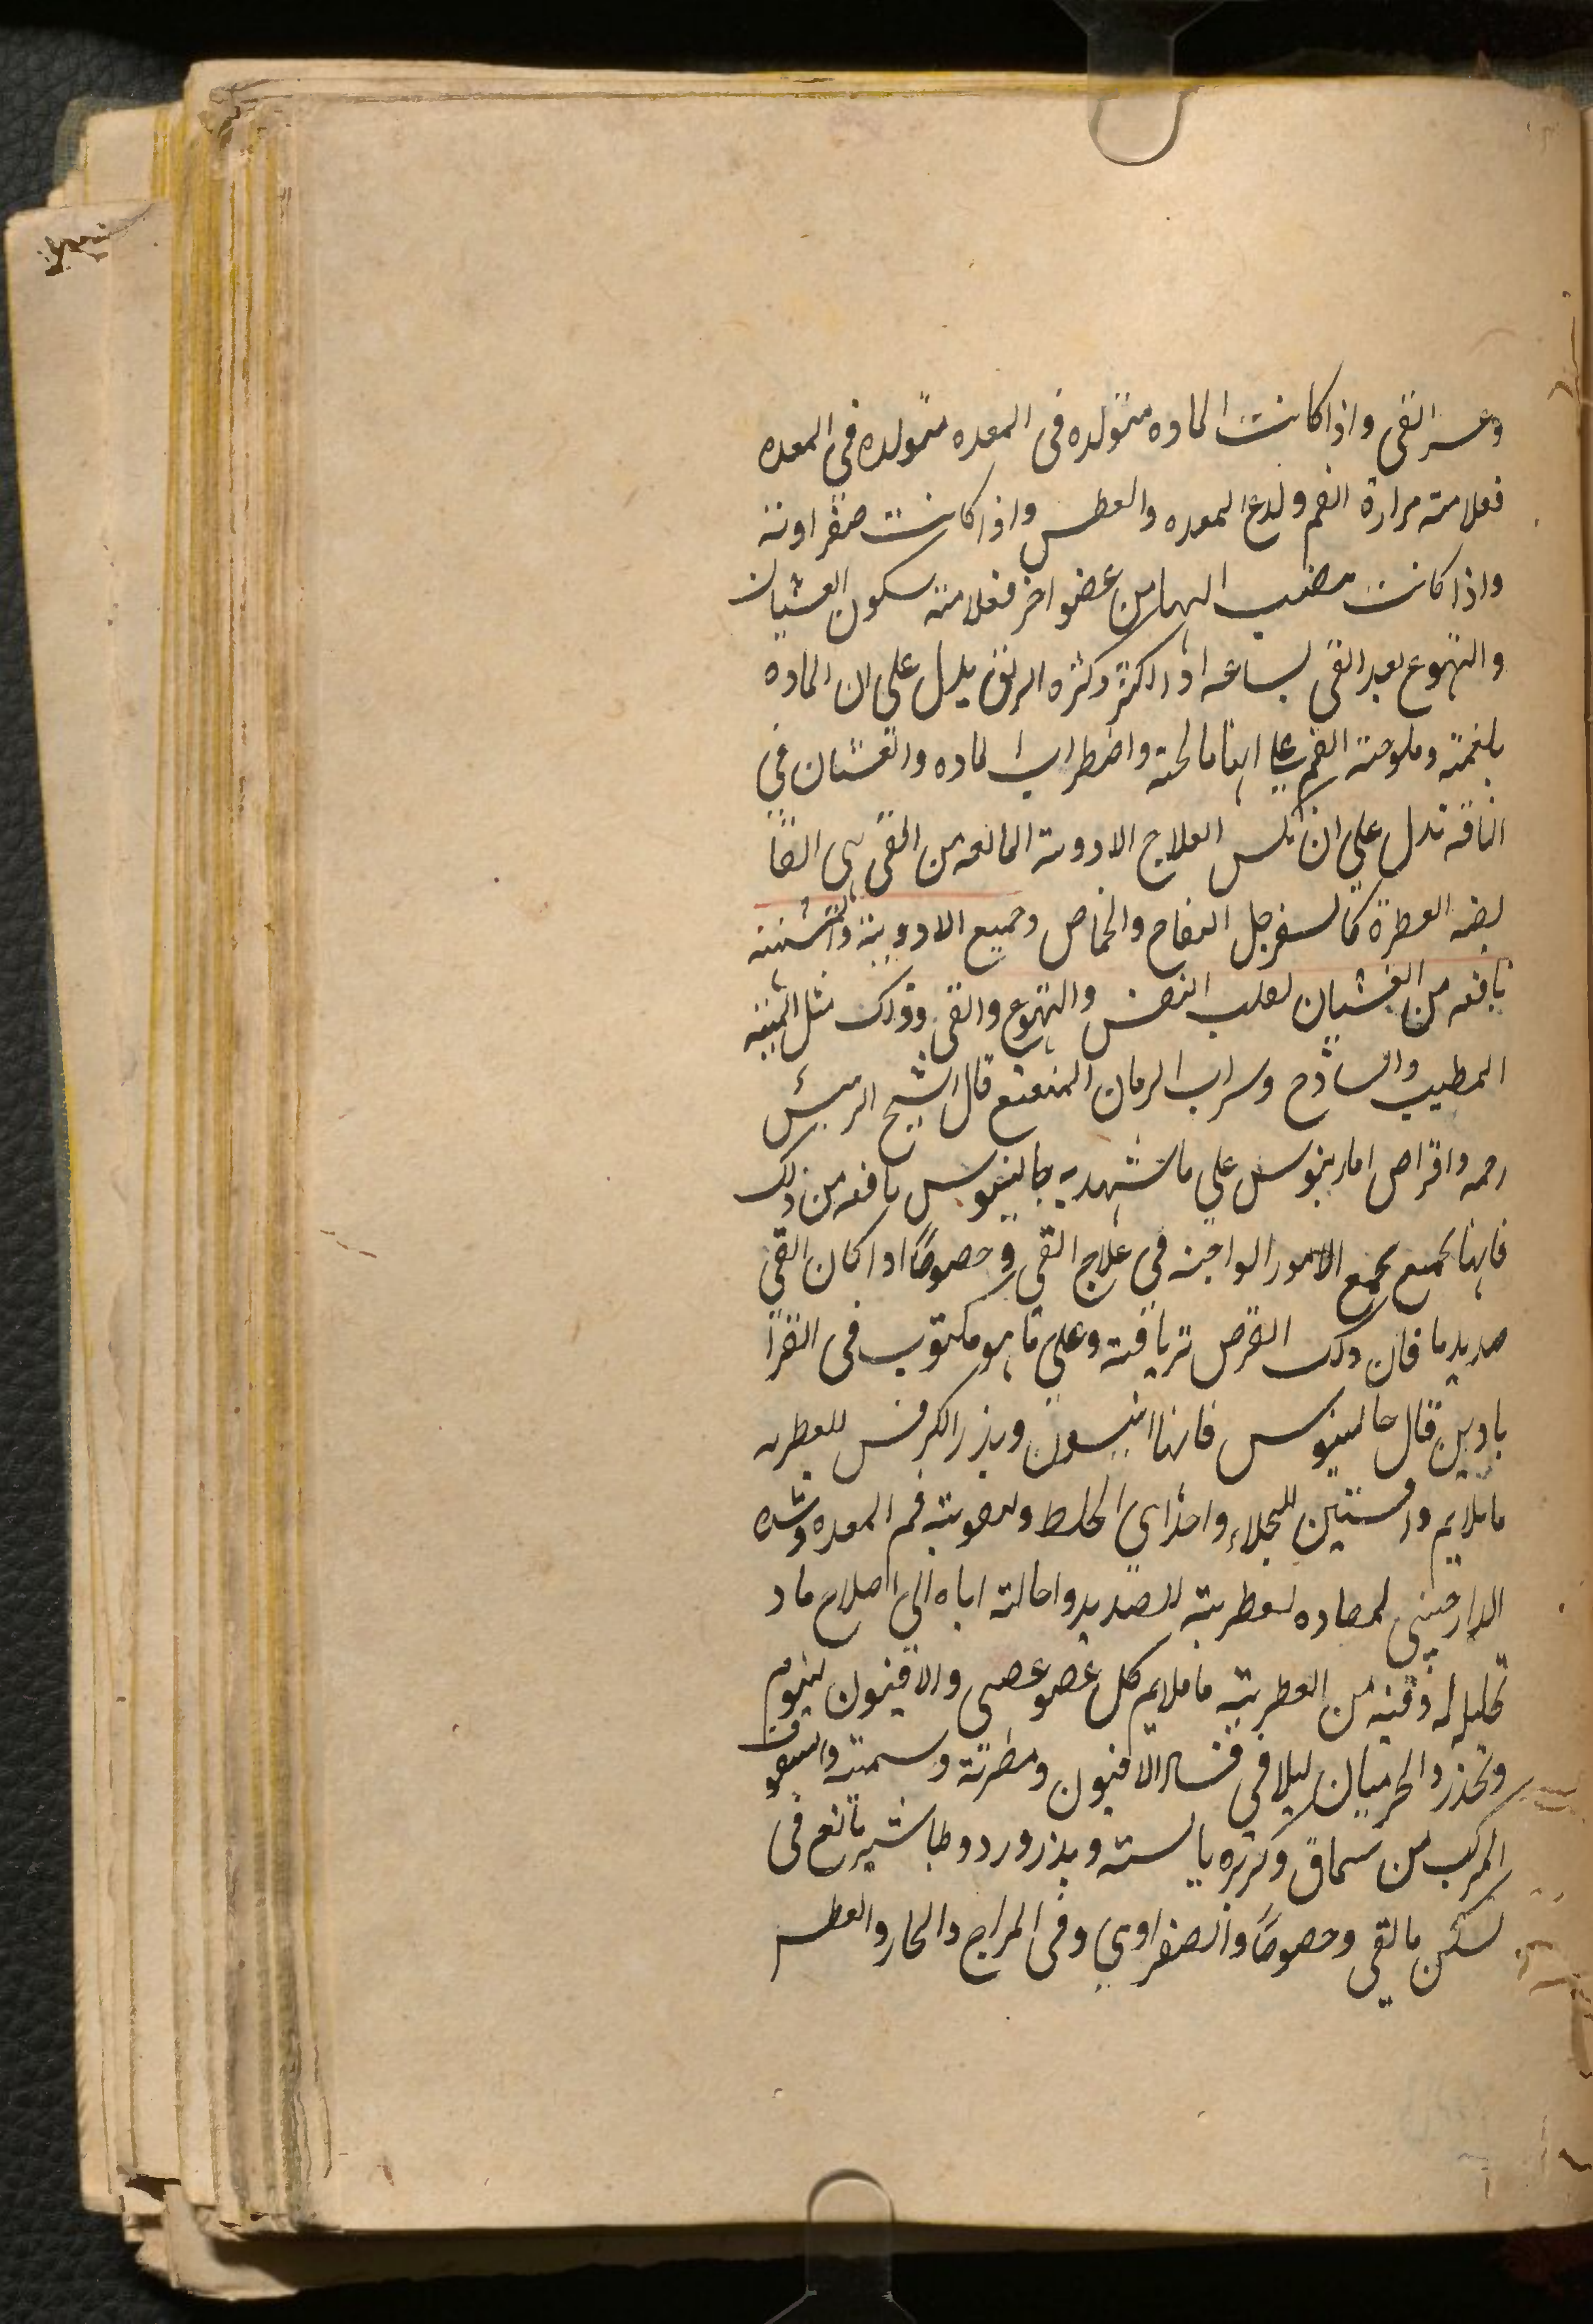 وعسر القى واذا كانت الماده متولده فى المعده متولده فى المعده
فعلامته مرارة الفم ولدع المعده والعطس واذا كانت صفراوته
واذا كانت مصب اليها من عضو اخر فعلامته سكون الغشيان
والتهوع بعد القى لساعه او اكثر وكثره الريق يدل على ان الماده
بلغمته وملوحته الفم على انها مالحته واضطراب الماده والغشان فى
الناقه تدل على ان نكس العلاج الادوىة المانعه من القى هى القا
بضه العطرة كالسفرجل التفاح والحماض وجميع الادويته
نافعه من الغشيان لعلب النفس والتهوع والقى وذلك مثل الميبه
المطيب والساذح وسراب الرمان المنعنع قال الشيخ الرئيس
رحمه واقراص امارينوس على ما شهد به جالينوس نافعه من ذلك
فانها تجمع جميع الامور الواجبه فى علاج القى وحصوصًا اذا كان القى
صديديا فان ذلك القرص ترياقته وعلى ما هو مكتوب فى القرا
بادين قال جالينوس فانها انيسون وبذر الكرفس للعطريه
ما ملايم وافسنتين للجلاء واحذار الخلط ولتقويته فم المعده وشده
الدارصينى لمضاده لعطريته للصديد واحالته اياه الى اصلاح ما د
تحليل له وفيه من العطريته ما ملايم كل عضو عصبى والافيون لينوم
وتخذر والجرميان ليلافى فساد الافيون ومضرته وسمته والسفوف
المركب من سماق وكزبره يابسته وبذر ورد وطباشير نافع فى
تسكين ما لقى وحصوصًا والصفراوى وفى المزاج والحار والعطس